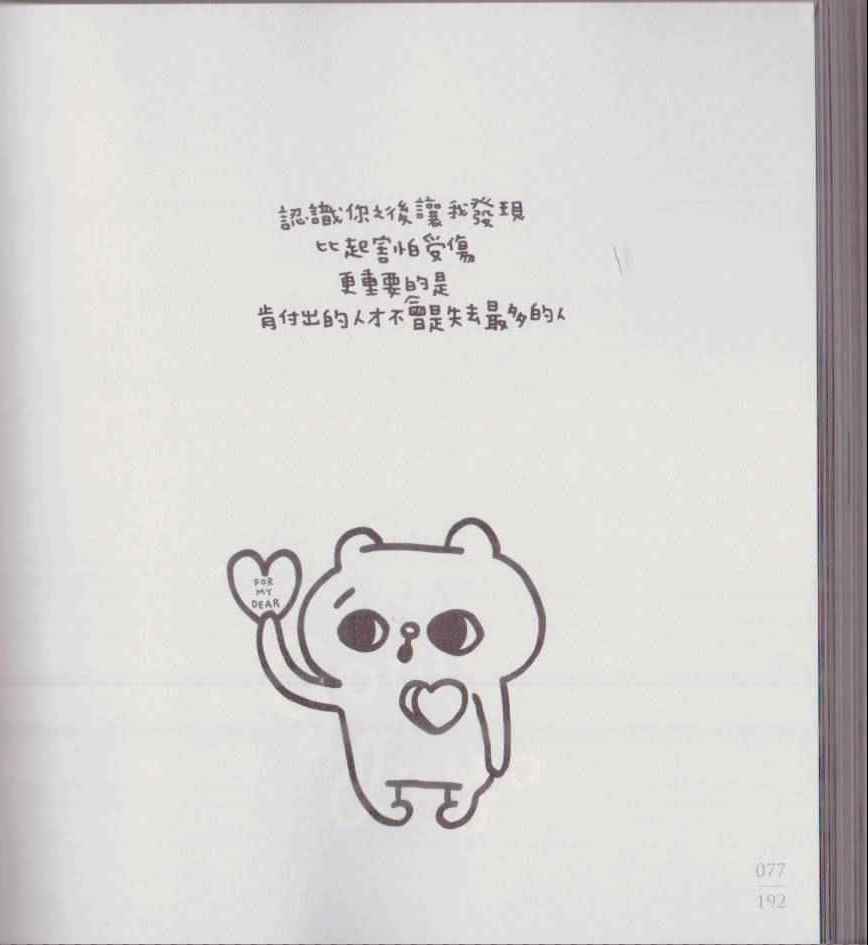 認識你之後讓我發現
比起害怕受傷
更重要的是
肯付出的人才不會是失去最多的人
FOR
MY
DEAR
077
192